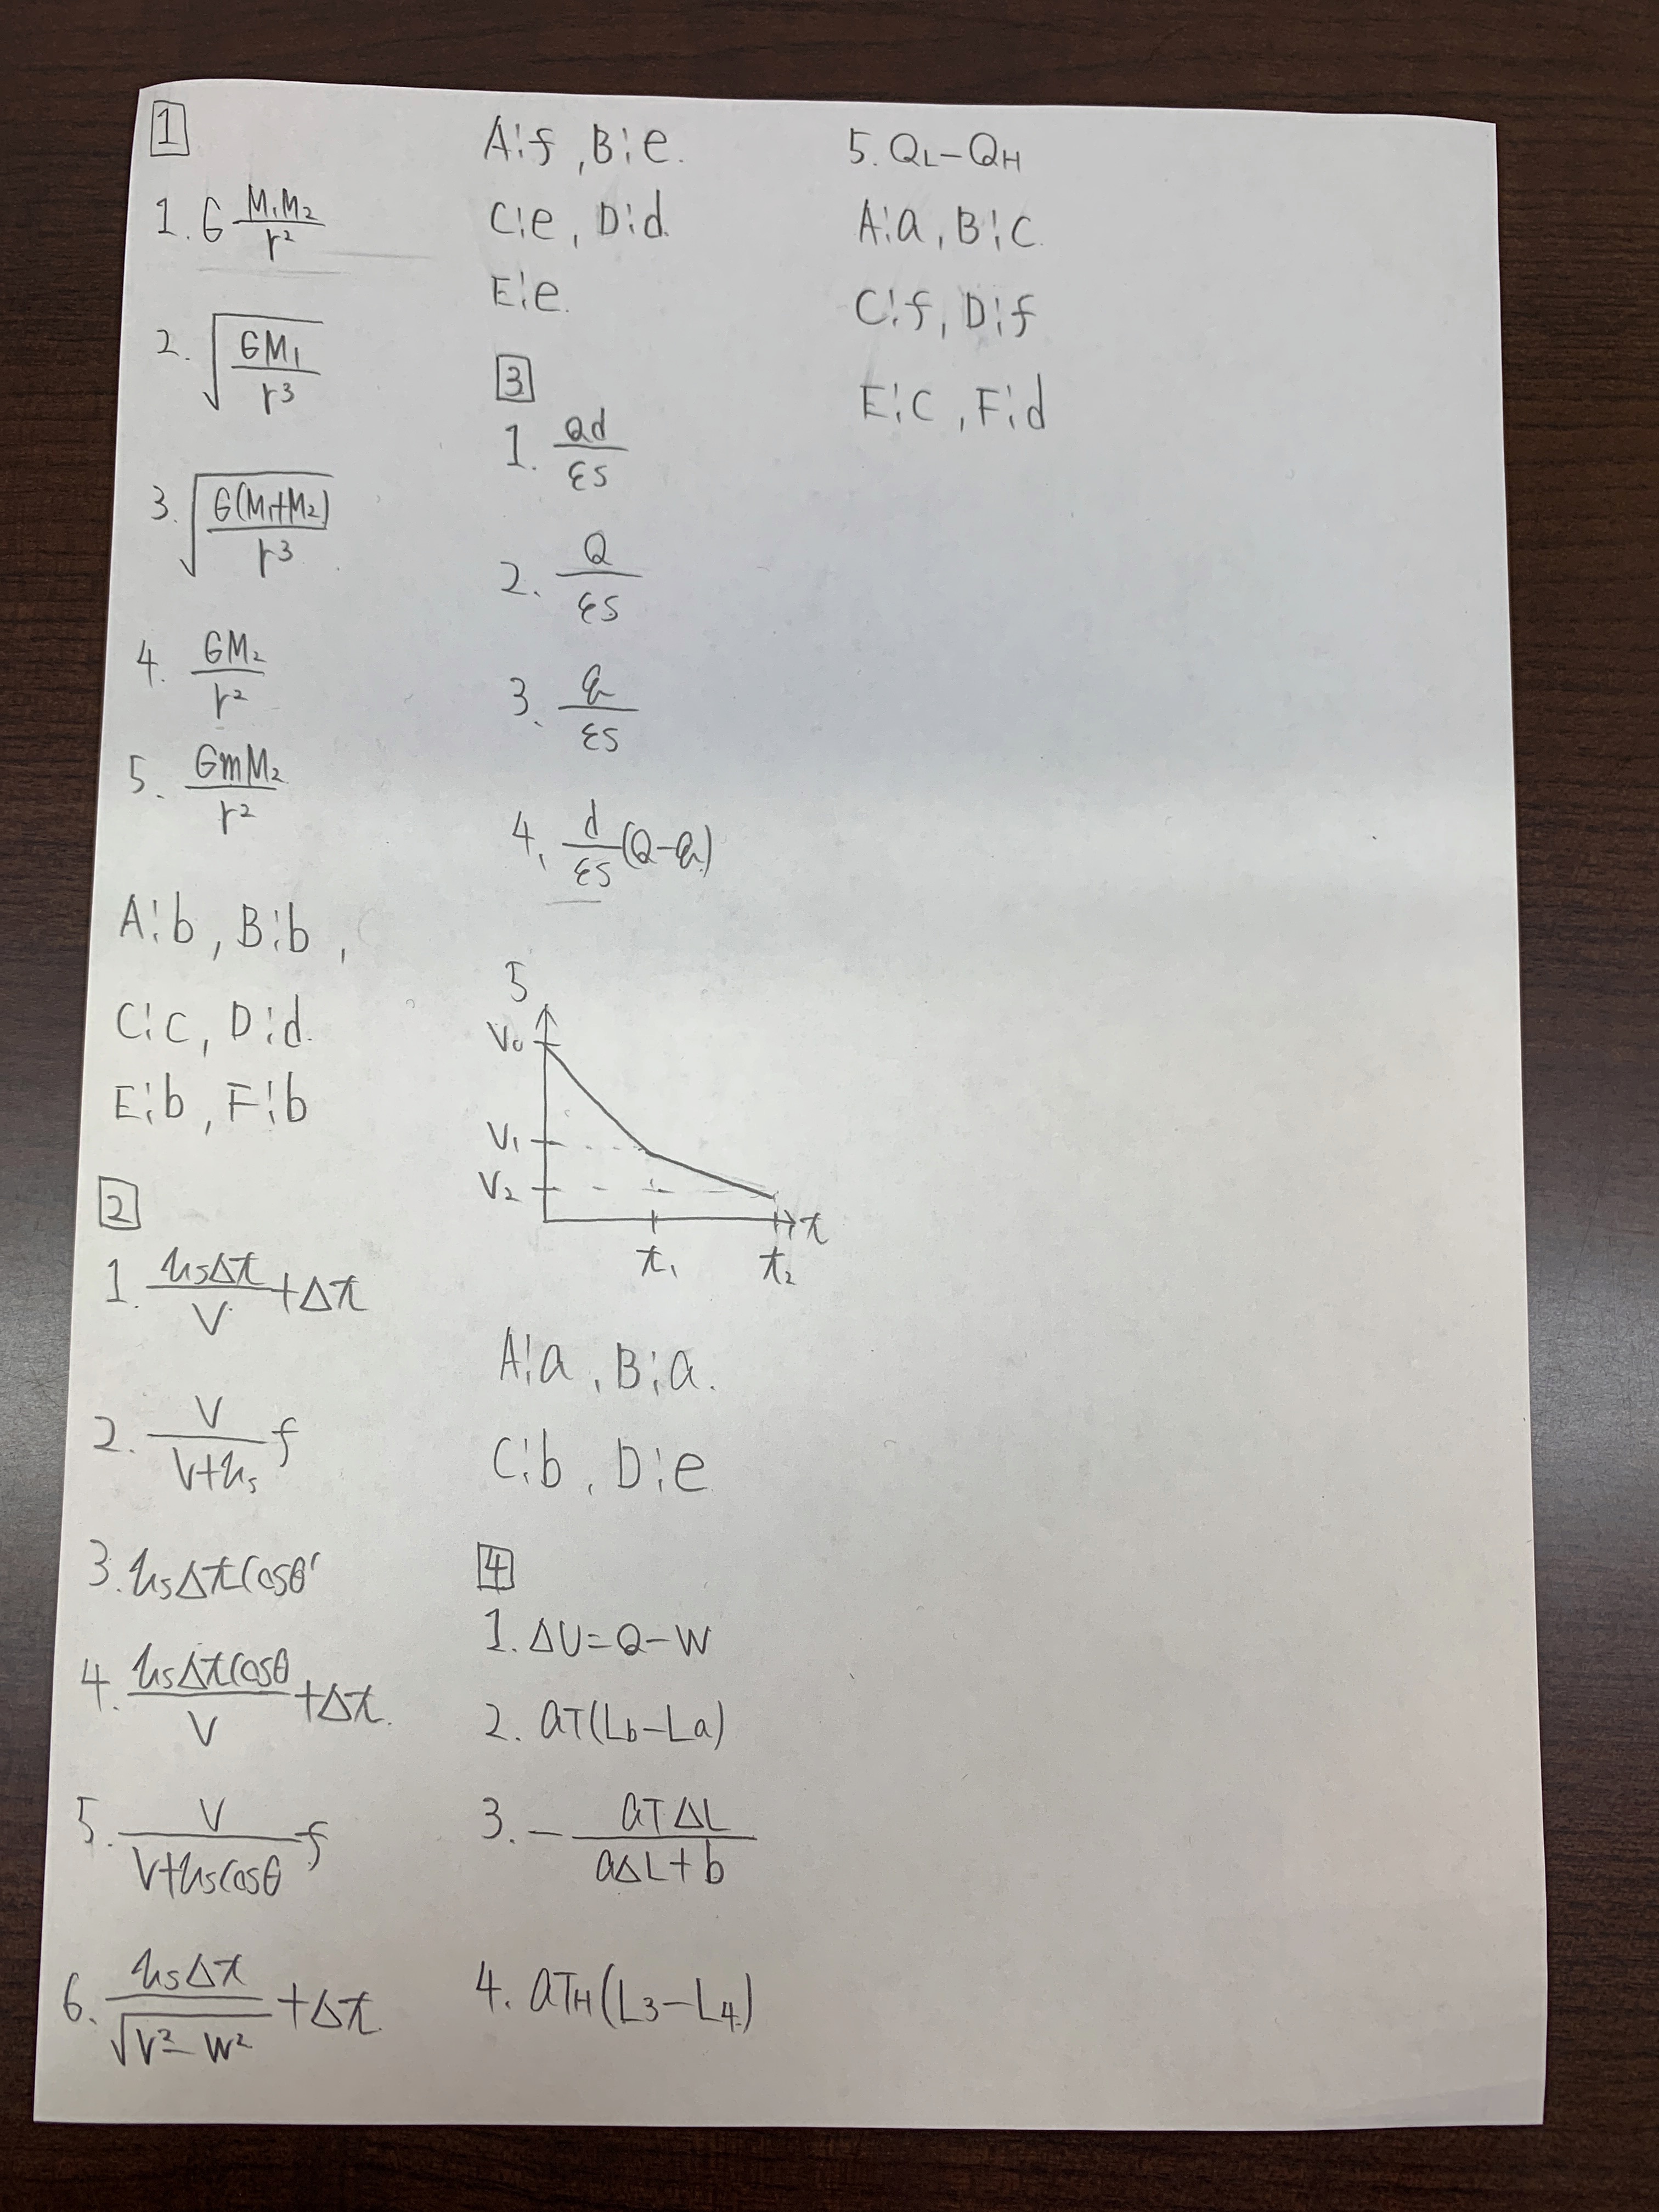 1
1. G M₁M₂/r²
2. √(GM₁/r³)
3. √(G(M₁+M₂)/r³)
4. GM₂/r²
5. GmM₂/r²
A:b, B:b,
C:c, D:d.
E:b, F:b
2
1. usΔt/V + Δt
2. V/(V+us) f
3. usΔt cosθ'
4. usΔt cosθ/V + Δt.
5. V/(V+us cosθ) f
6. usΔt/√(V²-W²) + Δt
A:f, B:e.
C:e, D:d.
E:e.
3
1. Qd/εS
2. Q/εS
3. q/εS
4. d/εS (Q-q)
5
V₀
V₁
V₂
t
t₁ t₂
A:a, B:a.
C:b, D:e
4
1. ΔU=Q-W
2. aT(Lb-La)
3. - aTΔL/(aΔL+b)
4. aTH(L₃-L₄)
5. QL-QH
A:a, B:c.
C:f, D:f
E:c, F:d